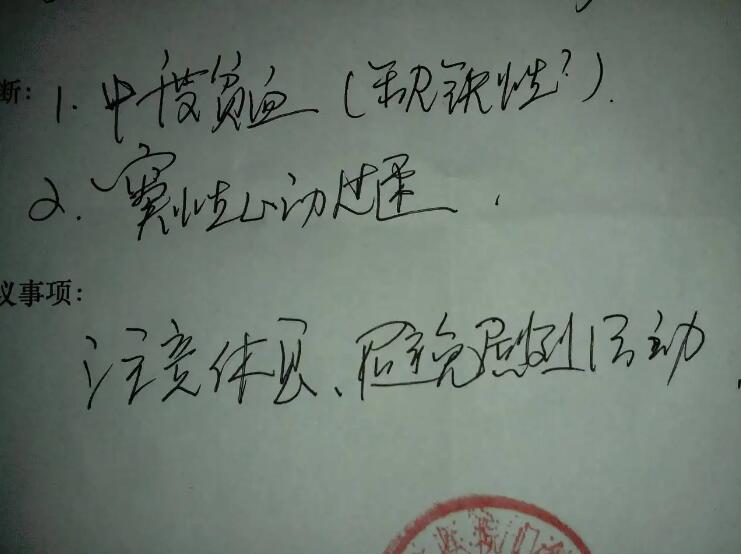 断: 1. 中度贫血 (缺铁性?).
2. 窦性心动过速.
议事项:
注意休息、避免剧烈活动.